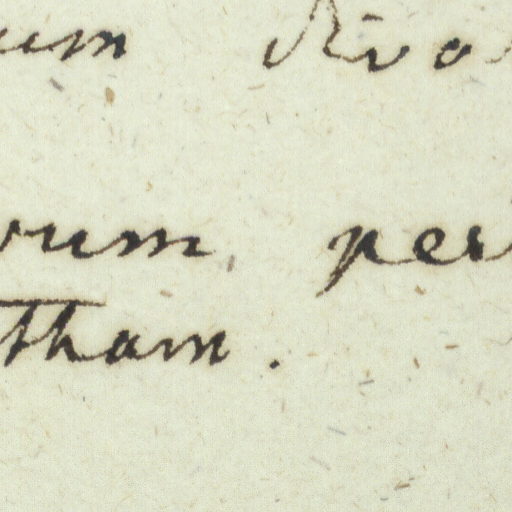 um Rivo
rum, per
tham.